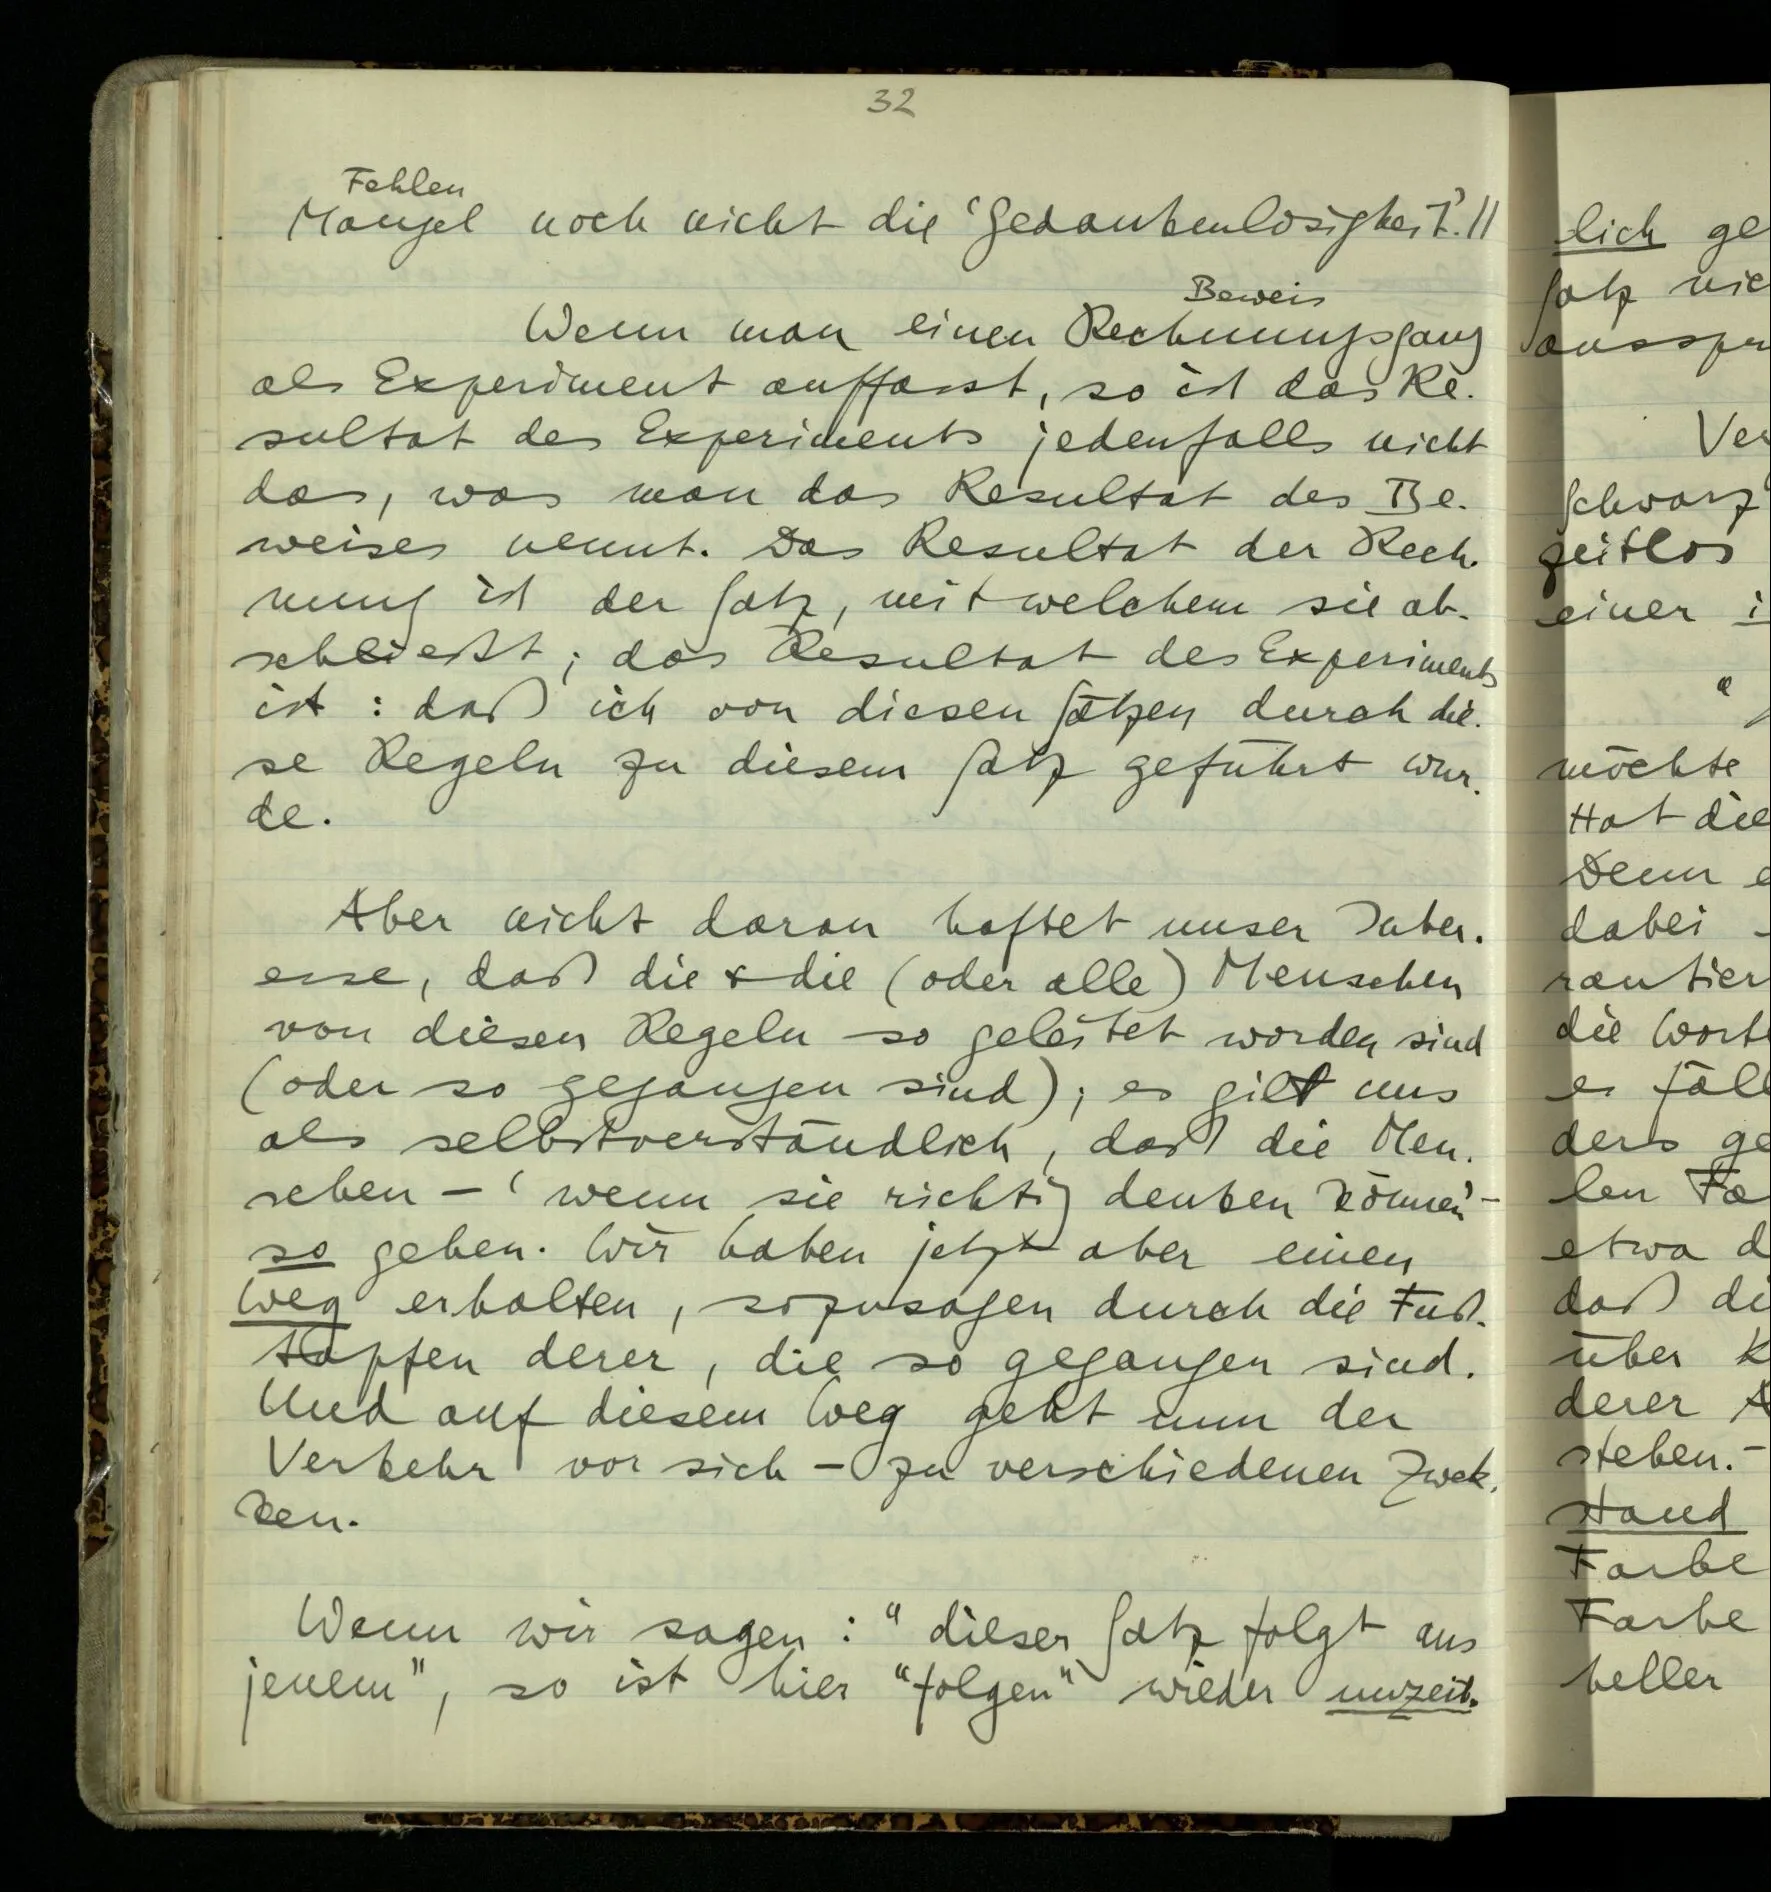 32
Fehlen
Mangel noch nicht die ‘Gedankenlosigkeit’.//
Beweis
Wenn man einen Rechnungsgang
als Experiment auffasst, so ist das Re-
sultat des Experiments jedenfalls nicht
das, was man das Resultat des Be-
weises nennt. Das Resultat der Rech-
nung ist der Satz, mit welchem sie ab-
schließt; das Resultat des Experiments
ist: daß ich von diesen Sätzen durch die-
se Regeln zu diesem Satz geführt wur-
de.
Aber nicht daran haftet unser Inter-
esse, daß die & die (oder alle) Menschen
von diesen Regeln so geleitet worden sind
(oder so gegangen sind); es gilt uns
als selbstverständlich, daß die Men-
schen – ‘wenn sie richtig denken können’ –
so gehen. Wir haben jetzt aber einen
Weg erhalten, sozusagen durch die Fuß-
stapfen derer, die so gegangen sind.
Und auf diesem Weg geht nun der
Verkehr vor sich – zu verschiedenen Zwek-
ken.
Wenn wir sagen: “dieser Satz folgt aus
jenem”, so ist hier “folgen” wieder unzeit-
lich ge
Satz nic
ausspr
Ver
Schwarz
zeitlos
einer i
“
möchte
Hat die
Denn e
dabei –
rantier
die Worte
es fäll
ders ge
len Fa
etwa d
daß di
über K
derer A
stehen. –
stand
Farbe
Farbe
heller